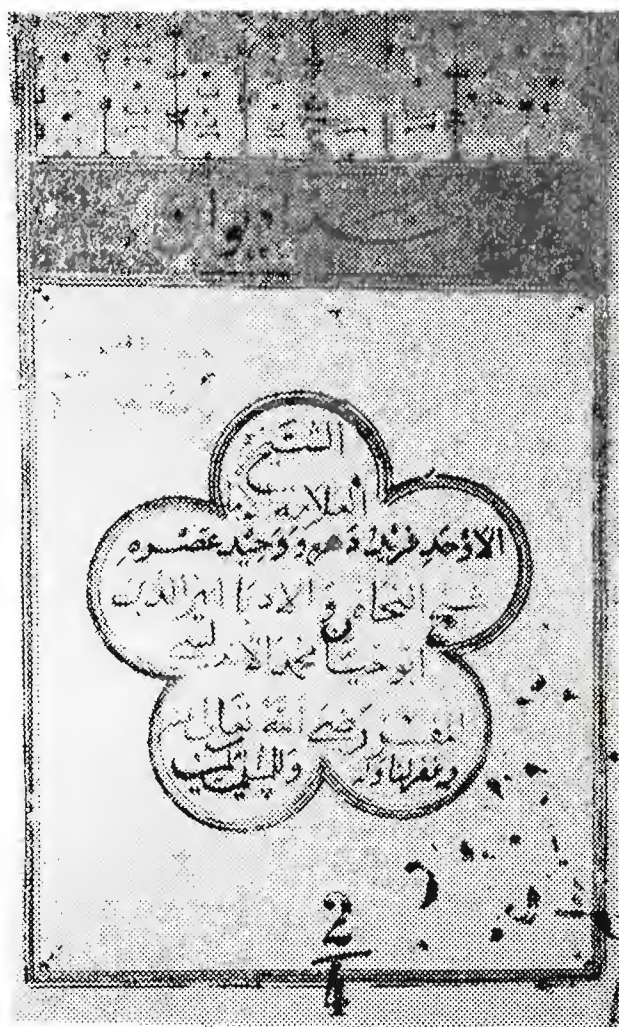 ديوان
الشيخ
العلامة
الأوحد فريد دهره ووحيد عصره
شيخ النحاة والادبا اثير الدين
ابو حيان محمد الاندلسي
المفسر رضي الله تعالى عنه
وغفر لنا وله وللمسلمين
2
4